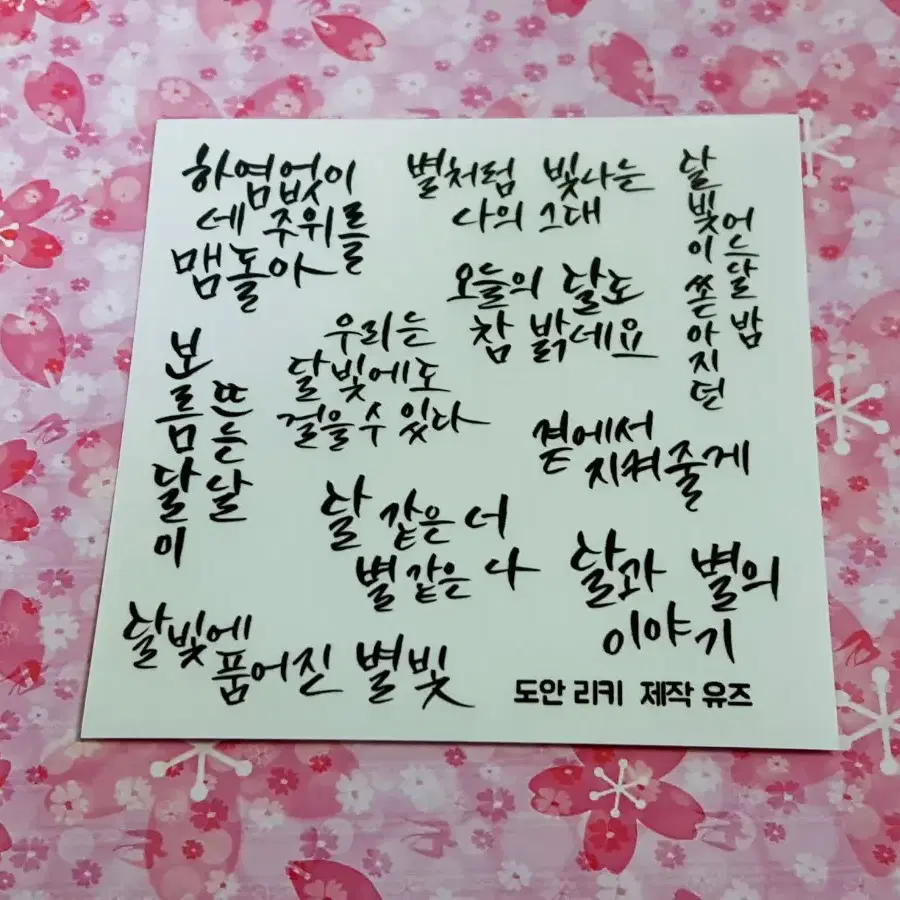 하염없이
네 주위를
맴돌아
별처럼 빛나는
나의 그대
달빛이 쏟아지던
어느 달밤
오늘의 달도
참 밝네요
우리는
달빛에도
걸을 수 있다
보름달이
뜨는 날
곁에서
지켜줄게
달 같은 너
별 같은 나
달과 별의
이야기
달빛에
품어진 별빛
도안 리키 제작 유즈